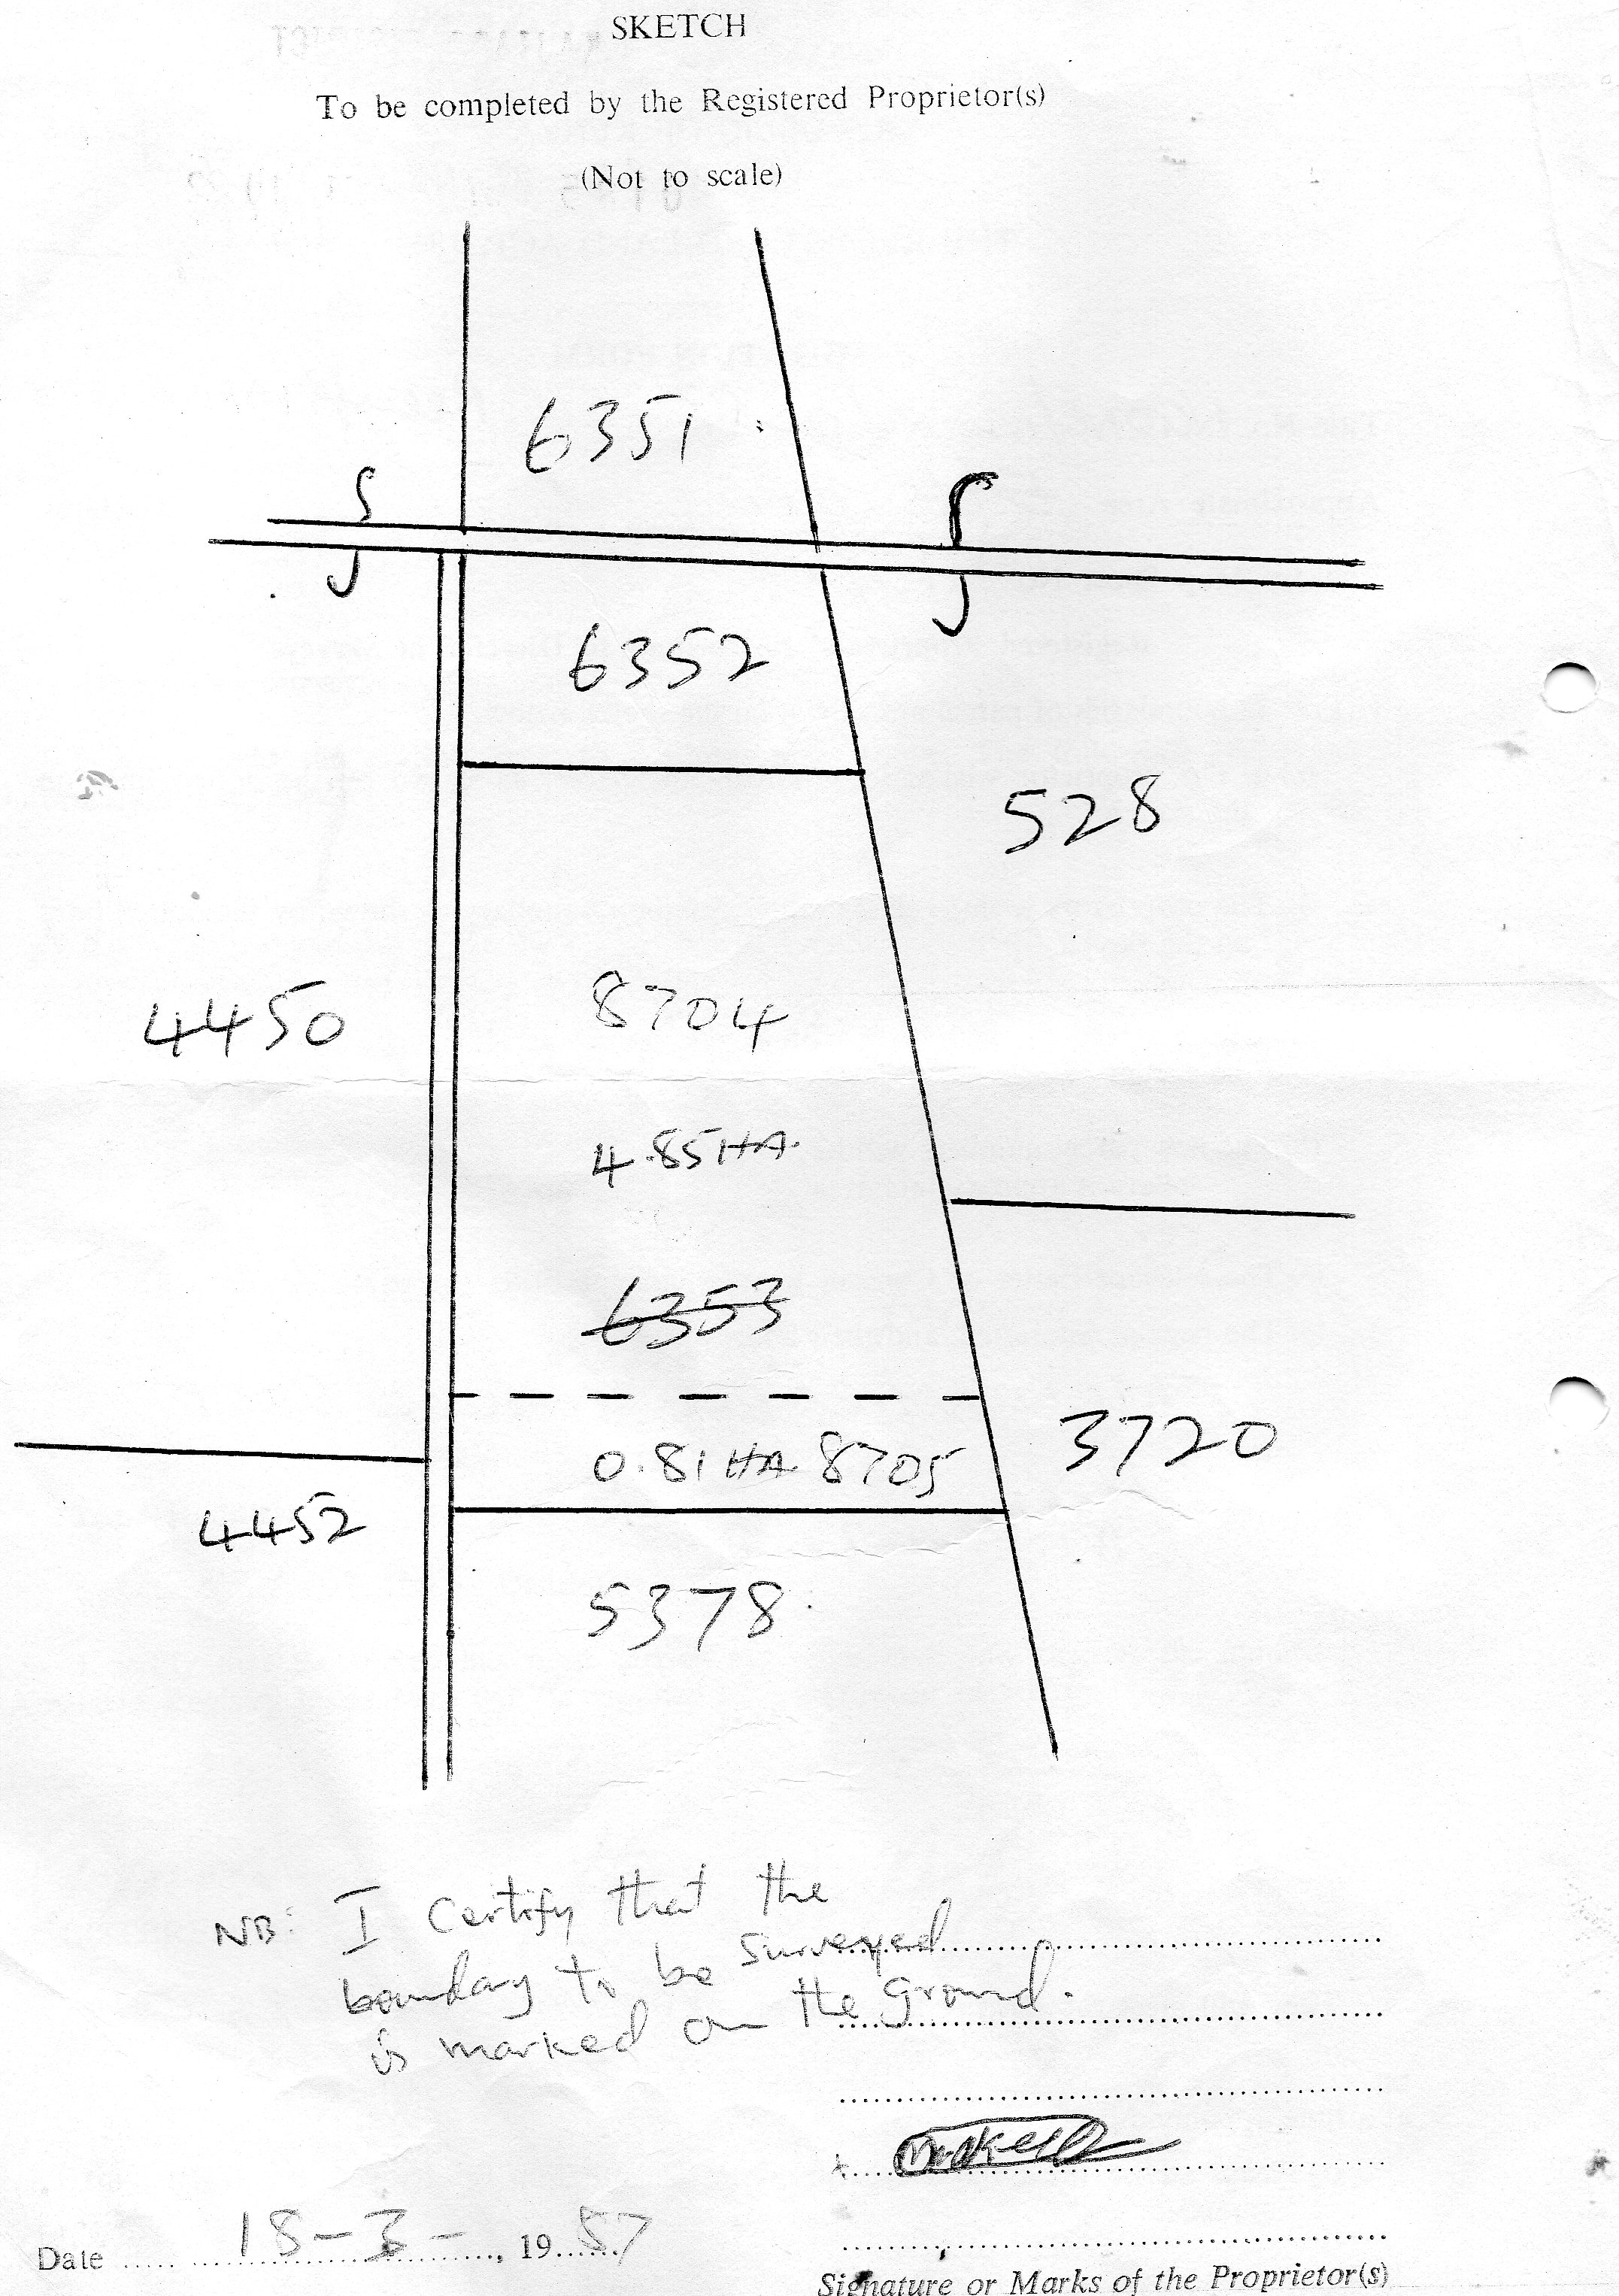 SKETCH
To be completed by the Registered Proprietor(s)
(Not to scale)
6351
6352
528
4450
8704
4.85HA.
6353
3720
0.81HA 8705
4452
5378
NB: I Certify that the
bounday to be Surveyed
is marked on the ground.
Date 18-3-, 1987
Signature or Marks of the Proprietor(s)